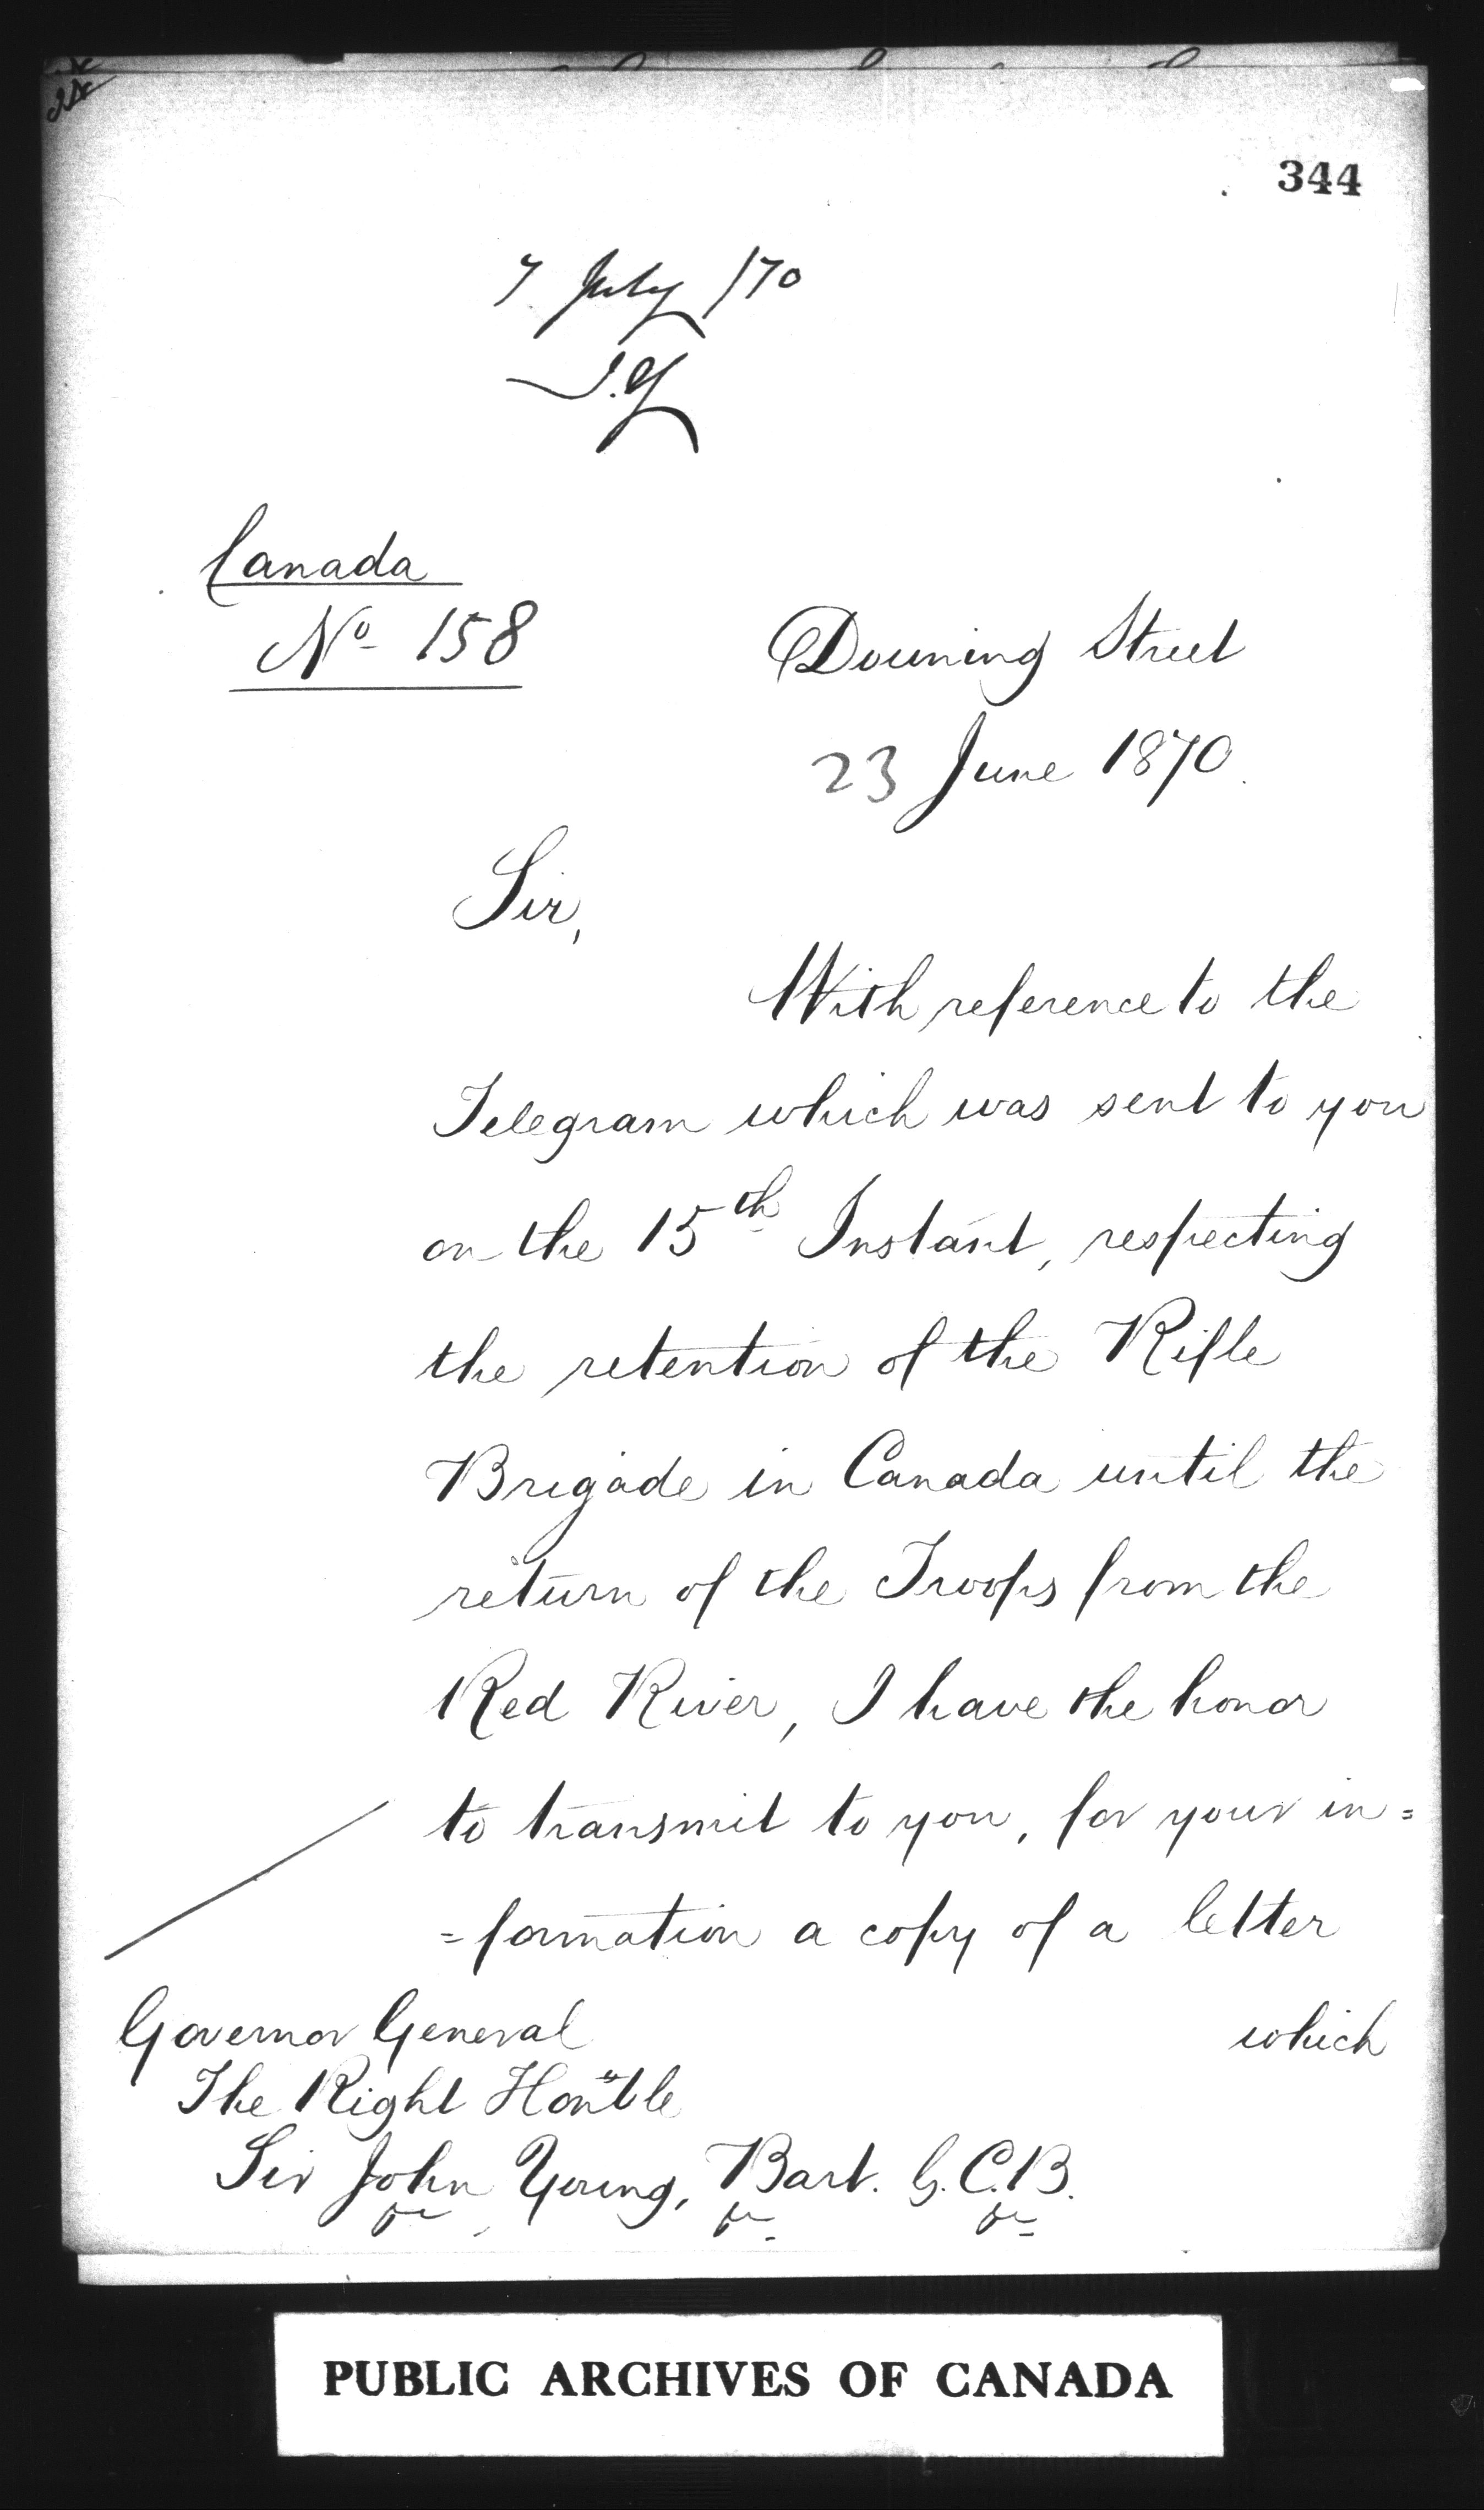 344
7 July /70
J.Y
Canada
No 158
Downing Street
23 June 1870.
Sir,
With reference to the
Telegram which was sent to you
on the 15th Instant, respecting
the retention of the Rifle
Brigade in Canada until the
return of the Troops from the
Red River, I have the honor
to transmit to you, for your in=
=formation a copy of a letter
which
Governor General
The Right Honble
Sir John Young, Bart. G.C.B.
PUBLIC ARCHIVES OF CANADA